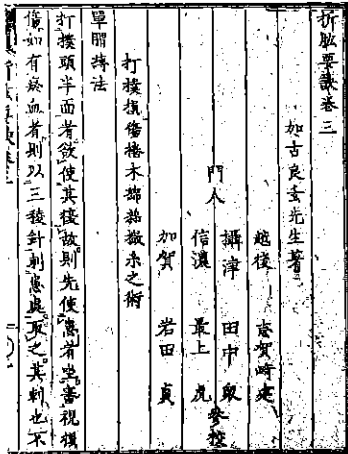 折肱要訣卷三
加古良玄先生著
越後 志賀時
門人 攝津 田中
信濃 最上 虎 參校
加賀 岩田 貞
打撲損傷捲木綿
之術
單肩
法
打撲頭半面者欲使其復故則先使患者坐審視損
傷如有瘀血者則以三稜針刺患處取之其刺也不